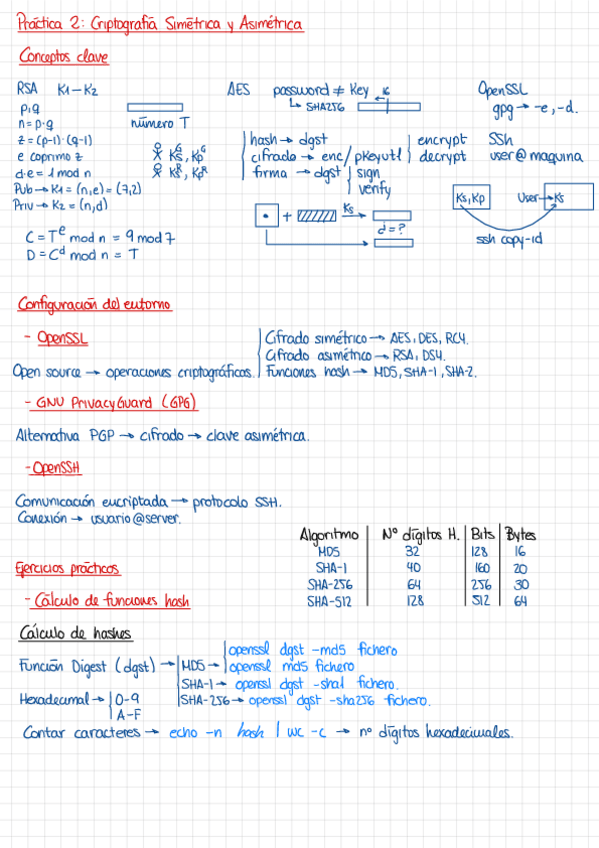 Práctica 2: Criptografía Simétrica y Asimétrica
Conceptos clave
RSA K1-K2
p,q
n = p·q
z = (p-1)·(q-1)
e coprimo z
d·e = 1 mod n
Pub → K1 = (n,e) = (7,2)
Priv → K2 = (n,d)
C = T^e mod n = 9 mod 7
D = C^d mod n = T
número T
Ks^G, Kp^G
Ks^R, Kp^R
AES password ≠ Key
↳ SHA256
hash → dgst
cifrado → enc/pkeyutl
encrypt
decrypt
firma → dgst
sign
verify
+ Ks
d = ?
OpenSSL
gpg → -e, -d.
SSh
user@maquina
Ks, Kp
User → Ks
ssh copy-id
Configuración del entorno
- OpenSSL
Open source → operaciones criptográficas.
Cifrado simétrico → AES, DES, RC4.
Cifrado asimétrico → RSA, DS4.
Funciones hash → MD5, SHA-1, SHA-2.
- GNU PrivacyGuard (GPG)
Alternativa PGP → cifrado → clave asimétrica.
- OpenSSH
Comunicación encriptada → protocolo SSH.
Conexión → usuario@server.
Algoritmo Nº dígitos H. Bits Bytes
MD5 32 128 16
SHA-1 40 160 20
SHA-256 64 256 30
SHA-512 128 512 64
Ejercicios prácticos
- Cálculo de funciones hash
Cálculo de hashes
Función Digest (dgst) →
MD5 →
openssl dgst -md5 fichero
openssl md5 fichero
SHA-1 → openssl dgst -sha1 fichero.
SHA-256 → openssl dgst -sha256 fichero.
Hexadecimal →
0-9
A-F
Contar caracteres → echo -n hash | wc -c → nº dígitos hexadecimales.